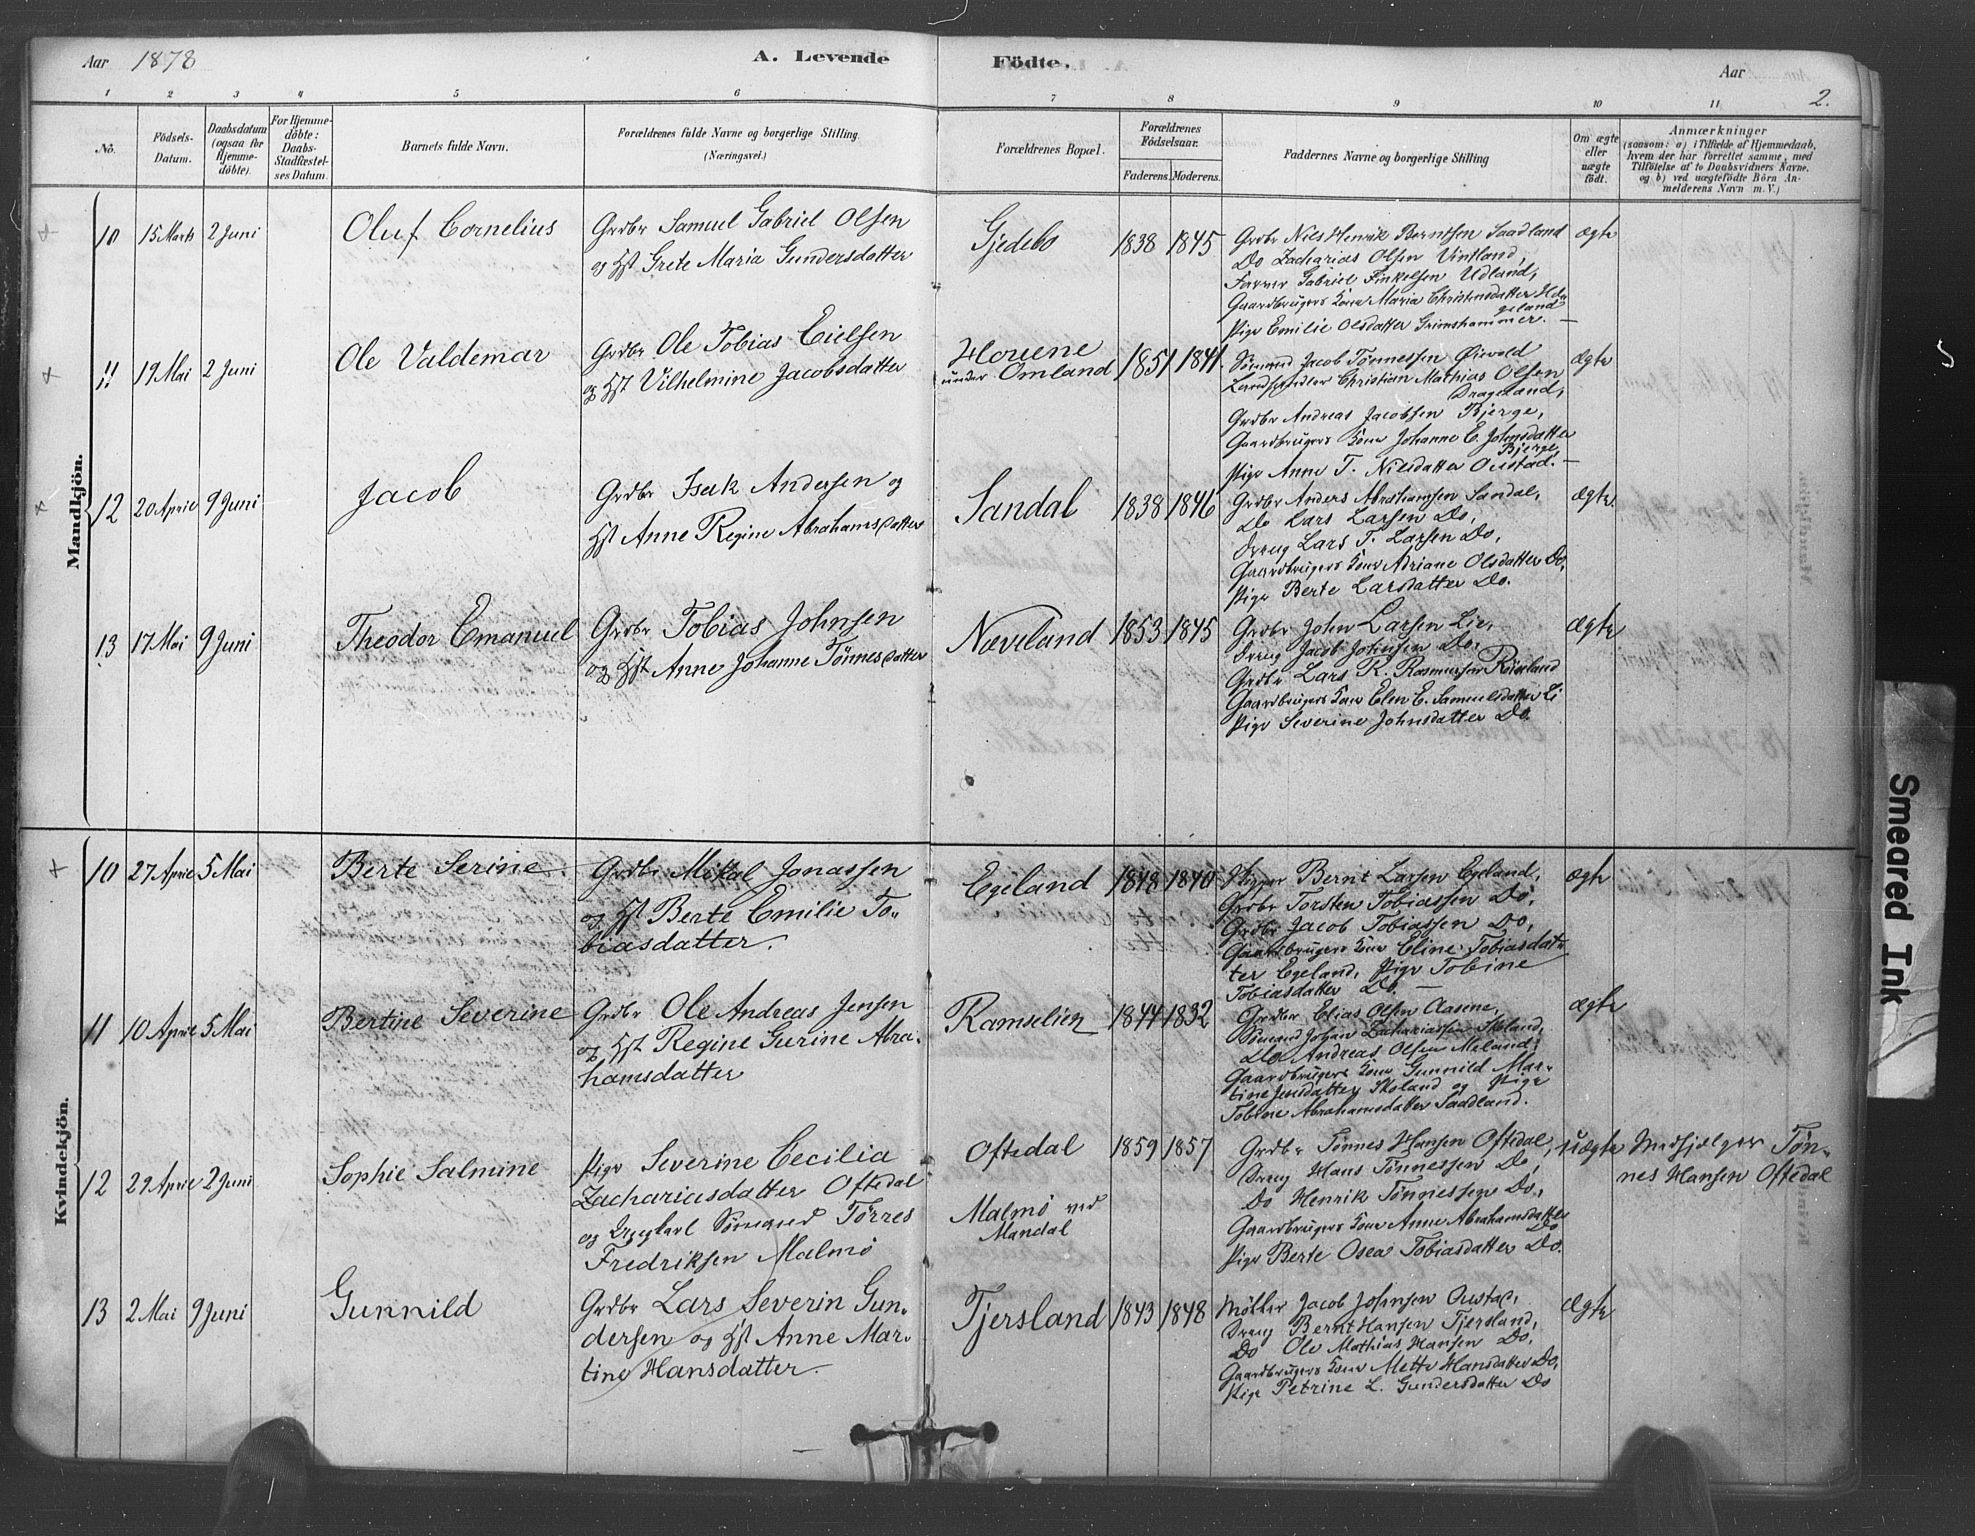 Aar 1878 A. Levende Födte. Aar
1 2 3 4 5 6 7 8 9 10 11 2.
No. Födsels-Datum. Daabsdatum (ogsaa for Hjemmedöbte). For Hjemmedöbte: Daabs-Stadfæstelses Datum. Barnets fulde Navn. Forældrenes fulde Navne og borgerlige Stilling. (Næringsvei.) Forældrenes Bopæl. Forældrenes Födselsaar. Faderens. Moderens. Faddernes Navne og borgerlige Stilling Om ægte eller uægte födt. Anmærkninger (saasom: a) i Tilfælde af Hjemmedaab, hvem der har forrettet samme, med Tilföielse af to Daabsvidners Navne, og b) ved uægtefödte Börn Anmelderens Navn m. V.)
Mandkjön.
10 15 Marts 2 Juni Oluf Cornelius Grdbr Samuel Gabriel Olsen
og Hst Grete Maria Gundersdatter
Gjedebo 1838 1845
Grdbr Niels Henrik Berntsen Saadland ægte
Do Zacharias Olsen Vintland,
Farver Gabriel Finkelsen Udland,
Gaardbrugers Kone Maria Christensdatter Hægeland
Pige Emilie Olsdatter Grimshammer. —
11 19 Mai 2 Juni Ole Valdemar Grdbr Ole Tobias Eielsen
og Hst Vilhelmine Jacobsdatter
Hovene
under Omland 1851 1841.
Sömand Jacob Tønnessen Öivold ægte
Landhandler Christian Mathias Olsen
Drageland,
Grdbr Andreas Jacobsen Bjerge,
Gaardbrugers Kone Johanne E. Johnsdatter
Bjerge,
Pige Anne T. Nilsdatter Oustad. —
12 20 April 9 Juni Jacob Grdbr Isak Andersen og
Hst Anne Regine Abrahamsdatter
Sandal 1838 1846
Grdbr Anders Abrahamsen Sandal, ægte.
Do Lars Larsen Do,
Dreng Lars T. Larsen Do,
Gaardbrugers Kone Adriane Olsdatter Do,
Pige Berte Larsdatter Do.
13 17 Mai 9 Juni Theodor Emanuel Grdbr Tobias Johnsen
og Hst Anne Johanne Tönnesdatter
Næveland 1853 1845
Grdbr John Larsen Lie, ægte
Dreng Jacob Johnsen Do,
Grdbr Lars R. Rasmussen
Gaardbrugers Kone Elen E. Samuelsdatter Li
Pige Severine Johnsdatter Do.
Kvindekjön.
10 27 April 5 Mai Berte Serine. Grdbr Mikal Jonassen
og Hst Berte Emilie To-
biasdatter.
Egeland 1848 1840
Bernt Larsen Egeland, ægte
Grdbr Torsten Tobiassen Do,
Grdbr Jacob Tobiassen Do,
Gaardbrugers Kone Eline Tobiasdat-
ter Egeland, Pige Tobine
Tobiasdatter Do. —
11 10 April 5 Mai Bertine Severine Grdbr Ole Andreas Jensen
og Hst Regine Gurine Abra-
hamsdatter
Ramselien 1844 1832
Grdbr Elias Olsen Aasene, ægte
Sömand Johan Zachariassen Skoland,
Do Andreas Olsen Meland,
Gaardbrugers Kone Gunnild Mar-
tine Jensdatter Skoland og Pige
Tobine Abrahamsdatter Saadland.
12 29 April 2 Juni Sophie Salmine Pige Severine Cecilia
Zachariasdatter Oftedal
og Ungkarl Sömand Tørres
Fredriksen Malmö
Oftedal 1859 1857
Malmö ved
Mandal
Grdbr Tönnes Hansen Oftedal, uægte Medhjælper Tön-
nes Hansen Oftedal
Dreng Hans Tönnessen Do,
Do Henrik Tönnessen Do,
Gaardbrugers Kone Anne Abrahamsdatter
Do
Pige Berte Osea Tobiasdatter Do.
13 2 Mai 9 Juni Gunnild Grdbr Lars Severin Gun-
dersen og Hst Anne Mar-
tine Hansdatter.
Tjersland 1843 1848
Möller Jacob Johnsen Oustad, ægte
Dreng Bernt Hansen Tjersland,
Do Ole Mathias Hansen Do,
Gaardbrugers Kone Mette Hansdatter Do,
Pige Petrine L. Gundersdatter Do
Smeared Ink